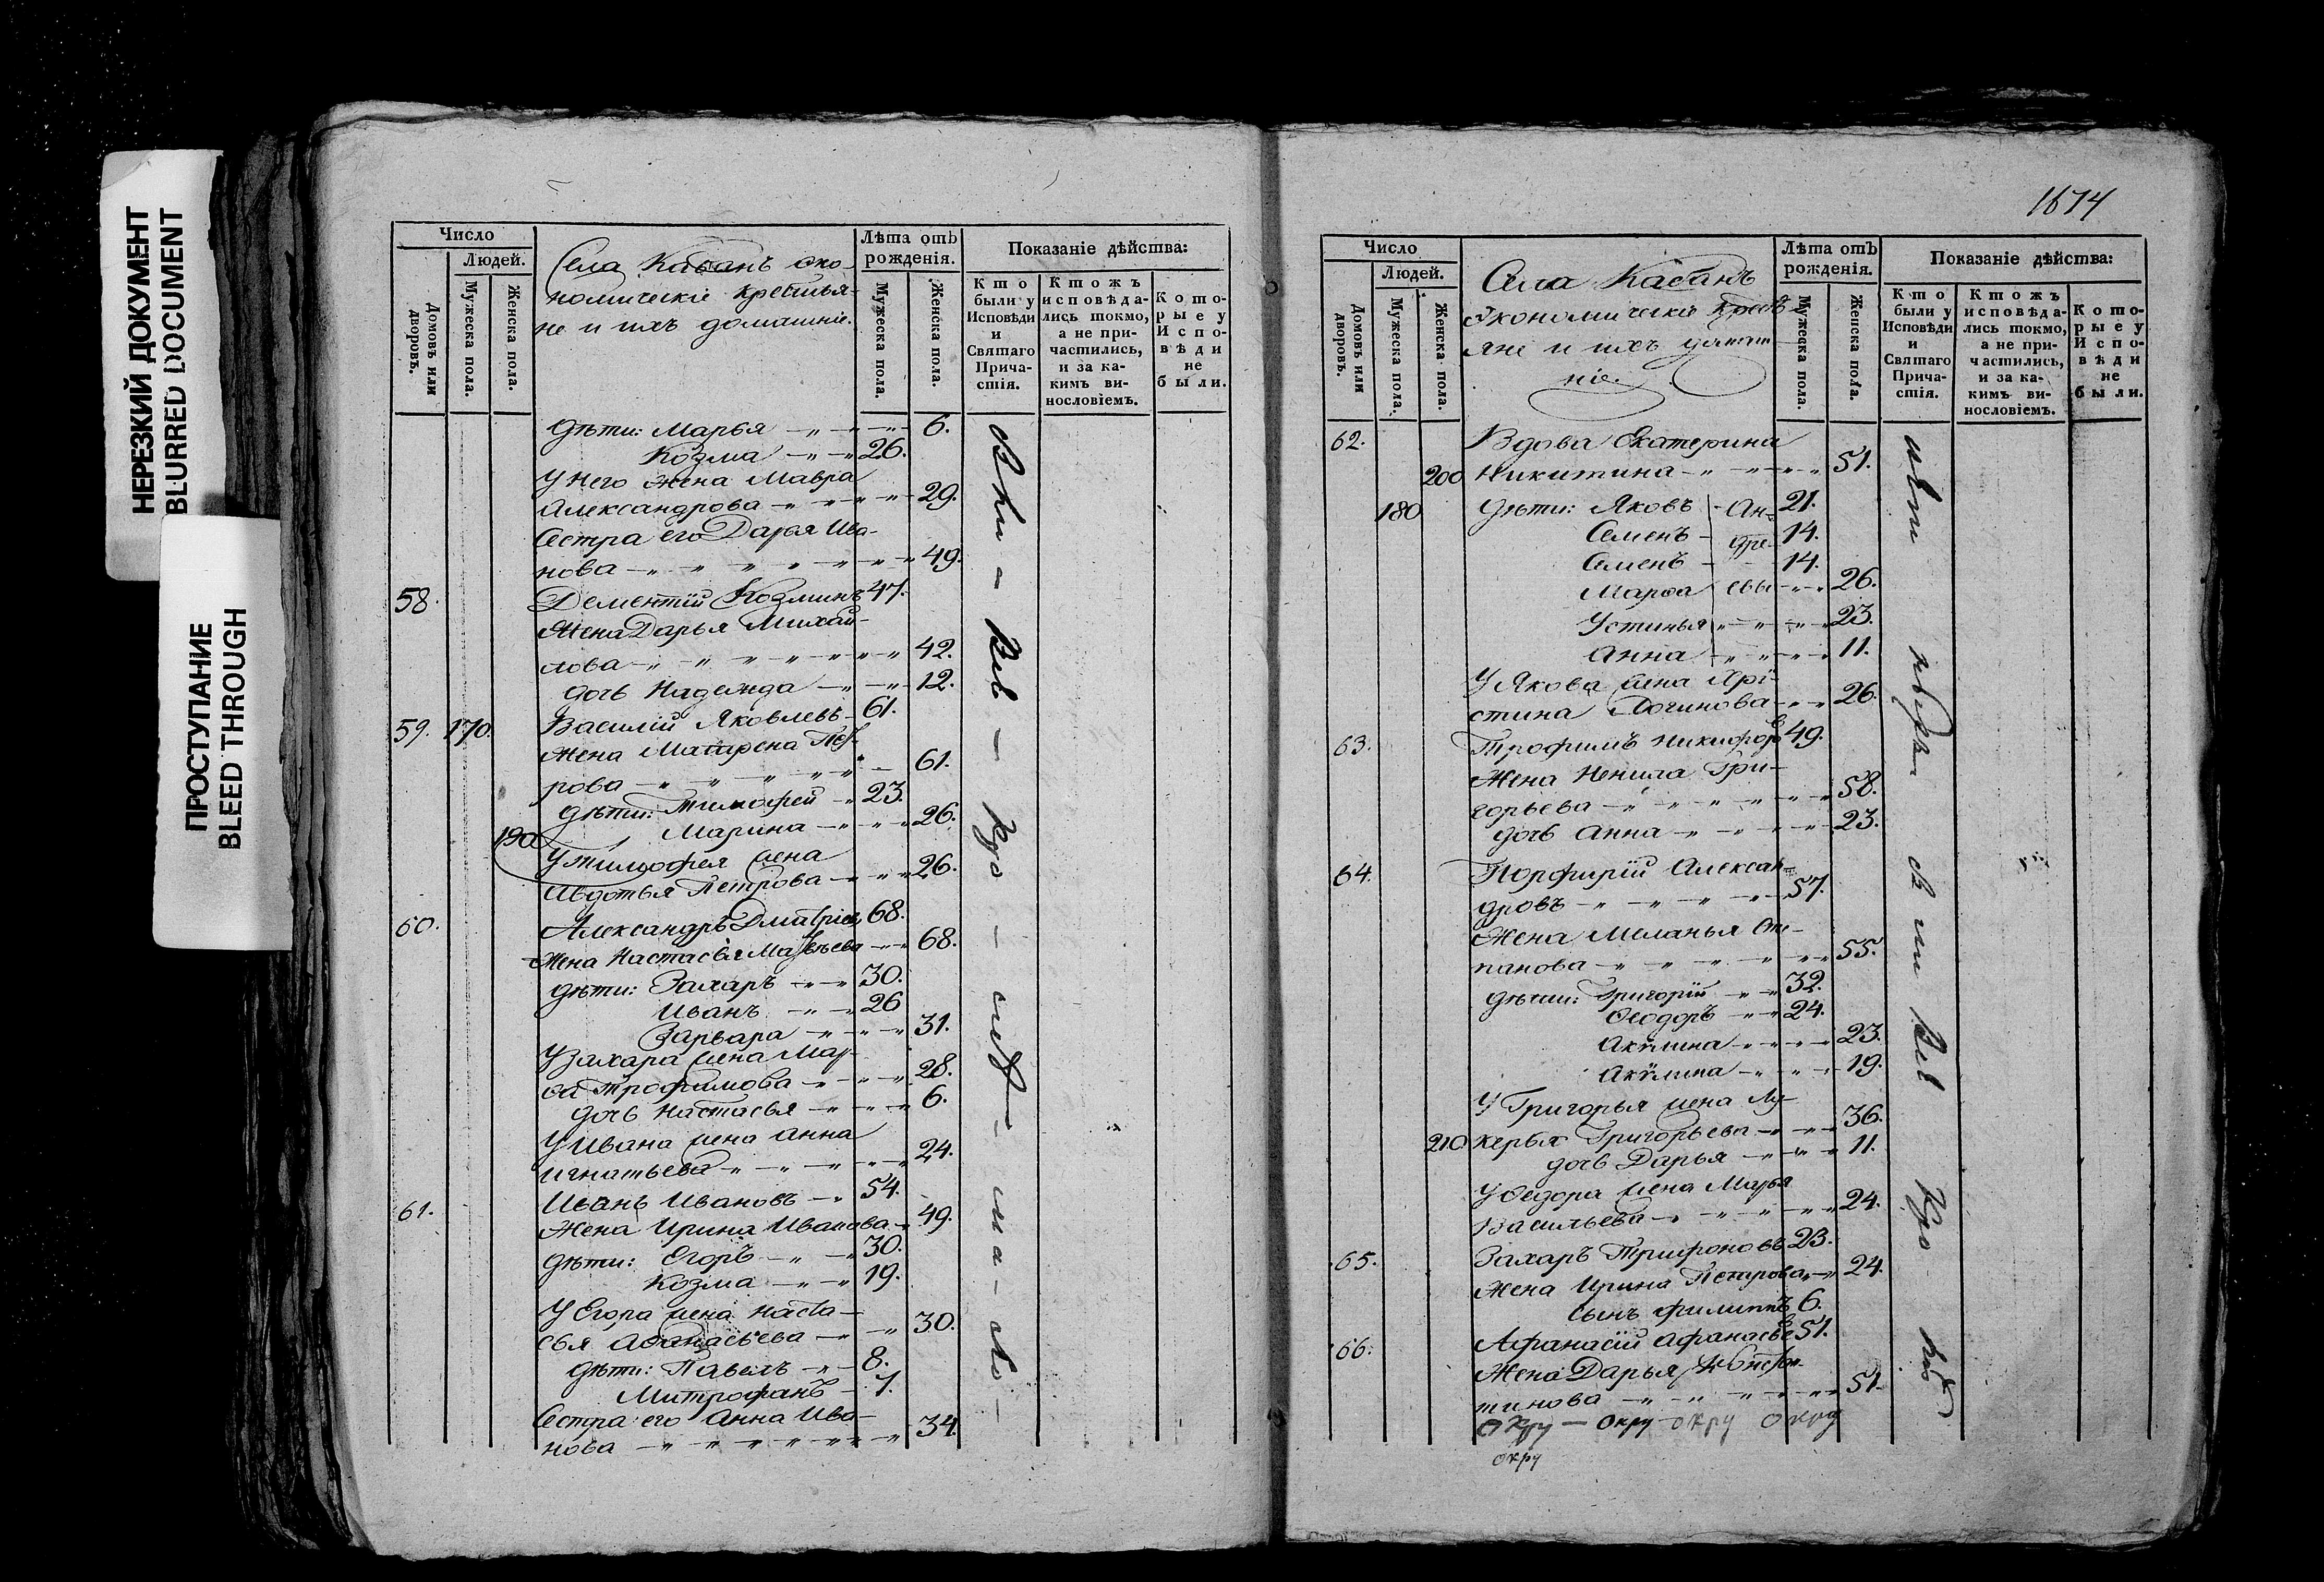 НЕРЕЗКИЙ ДОКУМЕНТ
BLURRED DOCUMENT
ПРОСТУПАНИЕ
BLEED THROUGH
Число
Людей.
Домовъ или дворовъ.
Мужеска пола.
Женска пола.
Села Кабанъ эко-
номическіе крестья-
не и ихъ домашніе.
Лѣта отъ
рожденія.
Мужеска пола.
Женска пола.
Показаніе дѣйства:
Кто
были у
Исповѣди
и
Святаго
Прича-
стія.
Ктожъ
исповѣда-
лись токмо,
а не при-
частились,
и за ка-
кимъ ви-
нословіемъ.
Кото-
рые у
Испо-
вѣди
не
были.
Дѣти: Марья 6.
Козма 26.
У него жена Мавра
Александрова 29.
Сестра его Дарья Ива-
нова 49.
58. Дементій Козминъ 47.
Жена Дарья Михай-
лова 42.
дочь Надежда 12.
59. 170. Василій Яковлевъ 61.
Жена Матрена Пет-
рова 61.
дѣти: Тимофей 23.
190 Марина 26.
У Тимофея жена
Авдотья Петрова 26.
60. Александръ Дмитріев 68.
Жена Настасья Матвѣева 68.
дѣти: Захаръ 30.
Иванъ 26
Варвара 31.
У Захара жена Мар-
ѳа Трофимова 28.
дочь Настасья 6.
У Ивана жена Анна
Игнатьева 24.
61. Иванъ Ивановъ 54.
Жена Ирина Иванова 49.
дѣти: Егоръ 30.
Козма 19.
У Егора жена Наста-
сья Аѳанасьева 30.
дѣти: Павелъ 8.
Митрофанъ 1.
Сестра его Анна Ива-
нова 34.
1674
Число
Людей.
Домовъ или дворовъ.
Мужеска пола.
Женска пола.
Села Кабанъ
экономическіе крестья-
яне и ихъ домаш-
ніе.
Лѣта отъ
рожденія.
Мужеска пола.
Женска пола.
Показаніе дѣйства:
Кто
были у
Исповѣди
и
Святаго
Прича-
стія.
Ктожъ
исповѣда-
лись токмо,
а не при-
частились,
и за ка-
кимъ ви-
нословіемъ.
Кото-
рые у
Испо-
вѣди
не
были.
62. Вдова Екатерина
200 Никитина 51.
180 дѣти: Яковъ Ан- 21.
Семенъ дре- 14.
Семенъ 14.
Марѳа евы 26.
Устинья 23.
Анна 11.
У Якова жена Хрі-
стина Логинова 26.
63. Трофимъ Никифоров 49.
Жена Ненила Гри-
горьева 58.
дочь Анна 23.
64. Порфирій Алексан-
дровъ 57.
Жена Меланья Сте-
панова 55.
дѣти: Григорій 32.
Ѳеодоръ 24.
Акилина 23.
Акилина 19.
У Григорья жена Лу-
210 керья Григорьева 36.
дочь Дарья 11.
У Ѳедора жена Марья
Васильева 24.
65. Захаръ Трифоновъ 23.
Жена Ирина Петрова 24.
сынъ Филиппъ 6.
66. Афанасій Афанасьев 51.
Жена Дарья Констан-
тинова 51.
окру — окру окру окру
окру